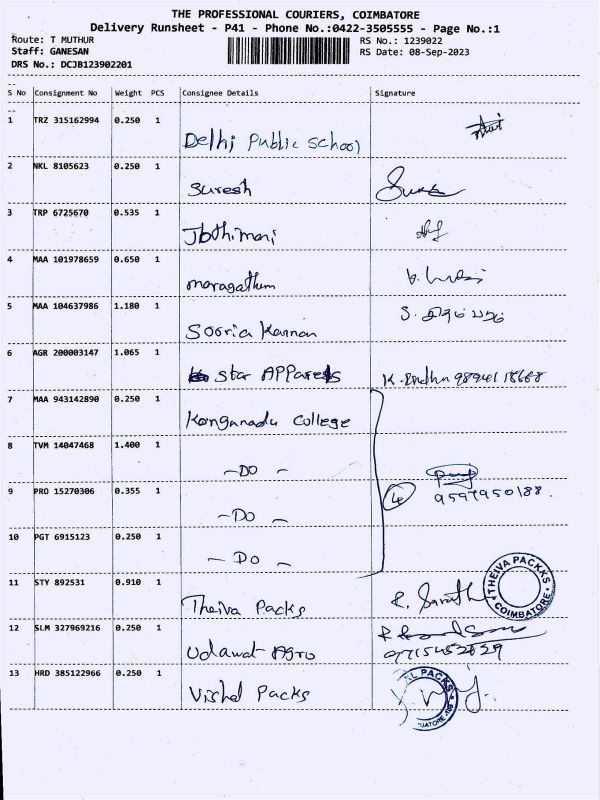 THE PROFESSIONAL COURIERS, COIMBATORE
Delivery Runsheet - P41 - Phone No.:0422-3505555 - Page No.:1
Route: T MUTHUR
RS No.: 1239022
Staff: GANESAN
RS Date: 08-Sep-2023
DRS No.: DCJB123902201
S No Consignment No Weight PCS Consignee Details Signature
1 TRZ 315162994 0.250 1
Delhi Public School
2 NKL 8105623 0.250 1
Suresh
3 TRP 6725670 0.535 1
Jothimani
4 MAA 101978659 0.650 1
maragathum
5 MAA 104637986 1.180 1
Sooria Kannan
6 AGR 200003147 1.065 1
Star APParels
7 MAA 943142890 0.250 1
Konganadu College
8 TVM 14047468 1.400 1
-DO-
9 PRO 15270306 0.355 1
-DO-
4
9597950188.
10 PGT 6915123 0.250 1
-DO-
11 STY 892531 0.910 1
Theiva Packs
THEIVA PACKKS
COIMBATORE
12 SLM 327969216 0.250 1
Udawat Agro
13 HRD 385122966 0.250 1
Vishal Packs